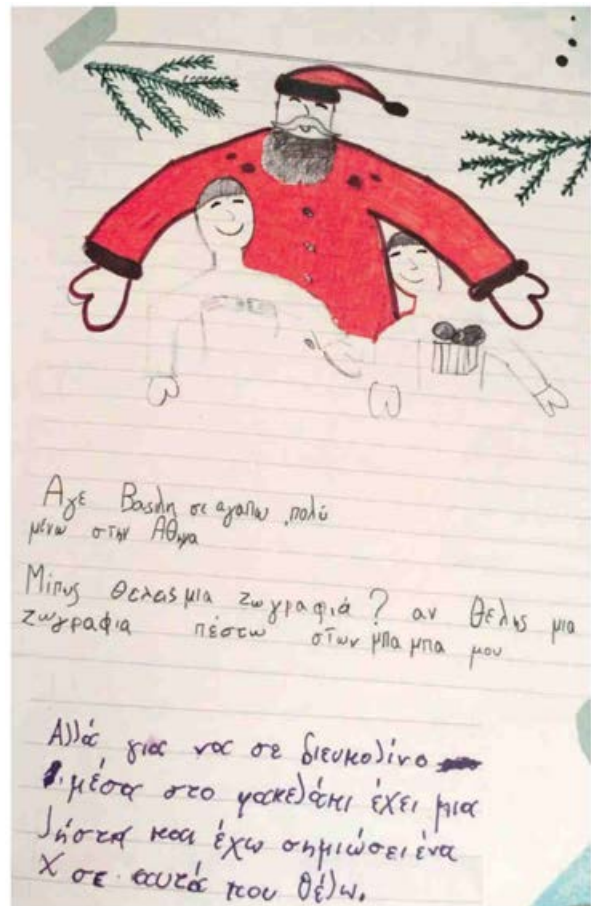 Αγε Βασιλη σε αγαπω πολύ
μένω στην Αθηνα
Μίπυς θελεις μια ζωγραφιά ? αν θελης μια
ζωγραφια πέστω στων μπα μπα μου
Αλλά για να σε διευκολίνο
μέσα στο φακελάκι έχει μια
λήστα και έχω σημιώσει ένα
Χ σε αυτά που θέλω.